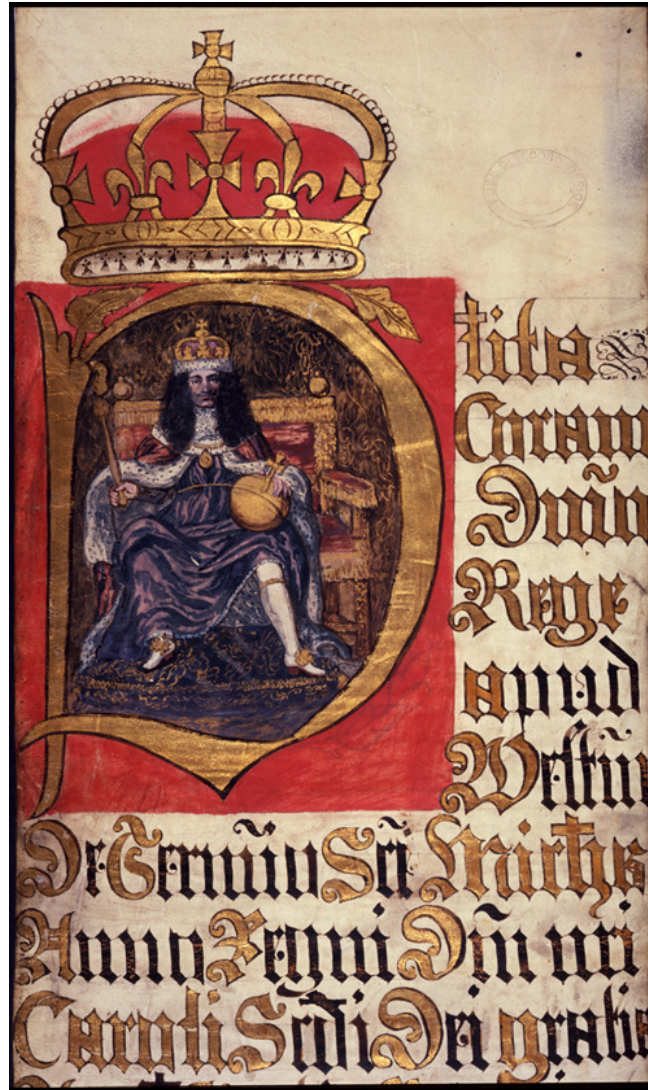 Plita
Coram
Dn̄o
Rege
apud
Westm̄
De Termīn Scī Mich̄is
Anno Regni Dn̄i nr̄i
Caroli Scd̄i Dei gratia